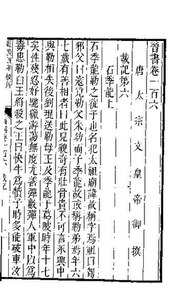 晉書卷一百六
唐太宗文皇帝御撰
載記第六
石季龍上
石季龍勒之從子也名犯太祖廟諱故稱字焉祖曰㔨
邪父曰寇覓勒父朱幼而子季龍故或稱勒弟焉年六
七歲有善相者曰此兒貌奇有壯骨貴不可言永興中
與勒相失後劉琨送勒母王及季龍于葛陂時年十七
矣性殘忍好馳獵游蕩無度尤善彈數彈人軍中以為
毒患勒白王將殺之王曰快牛為犢子時多能破車汝